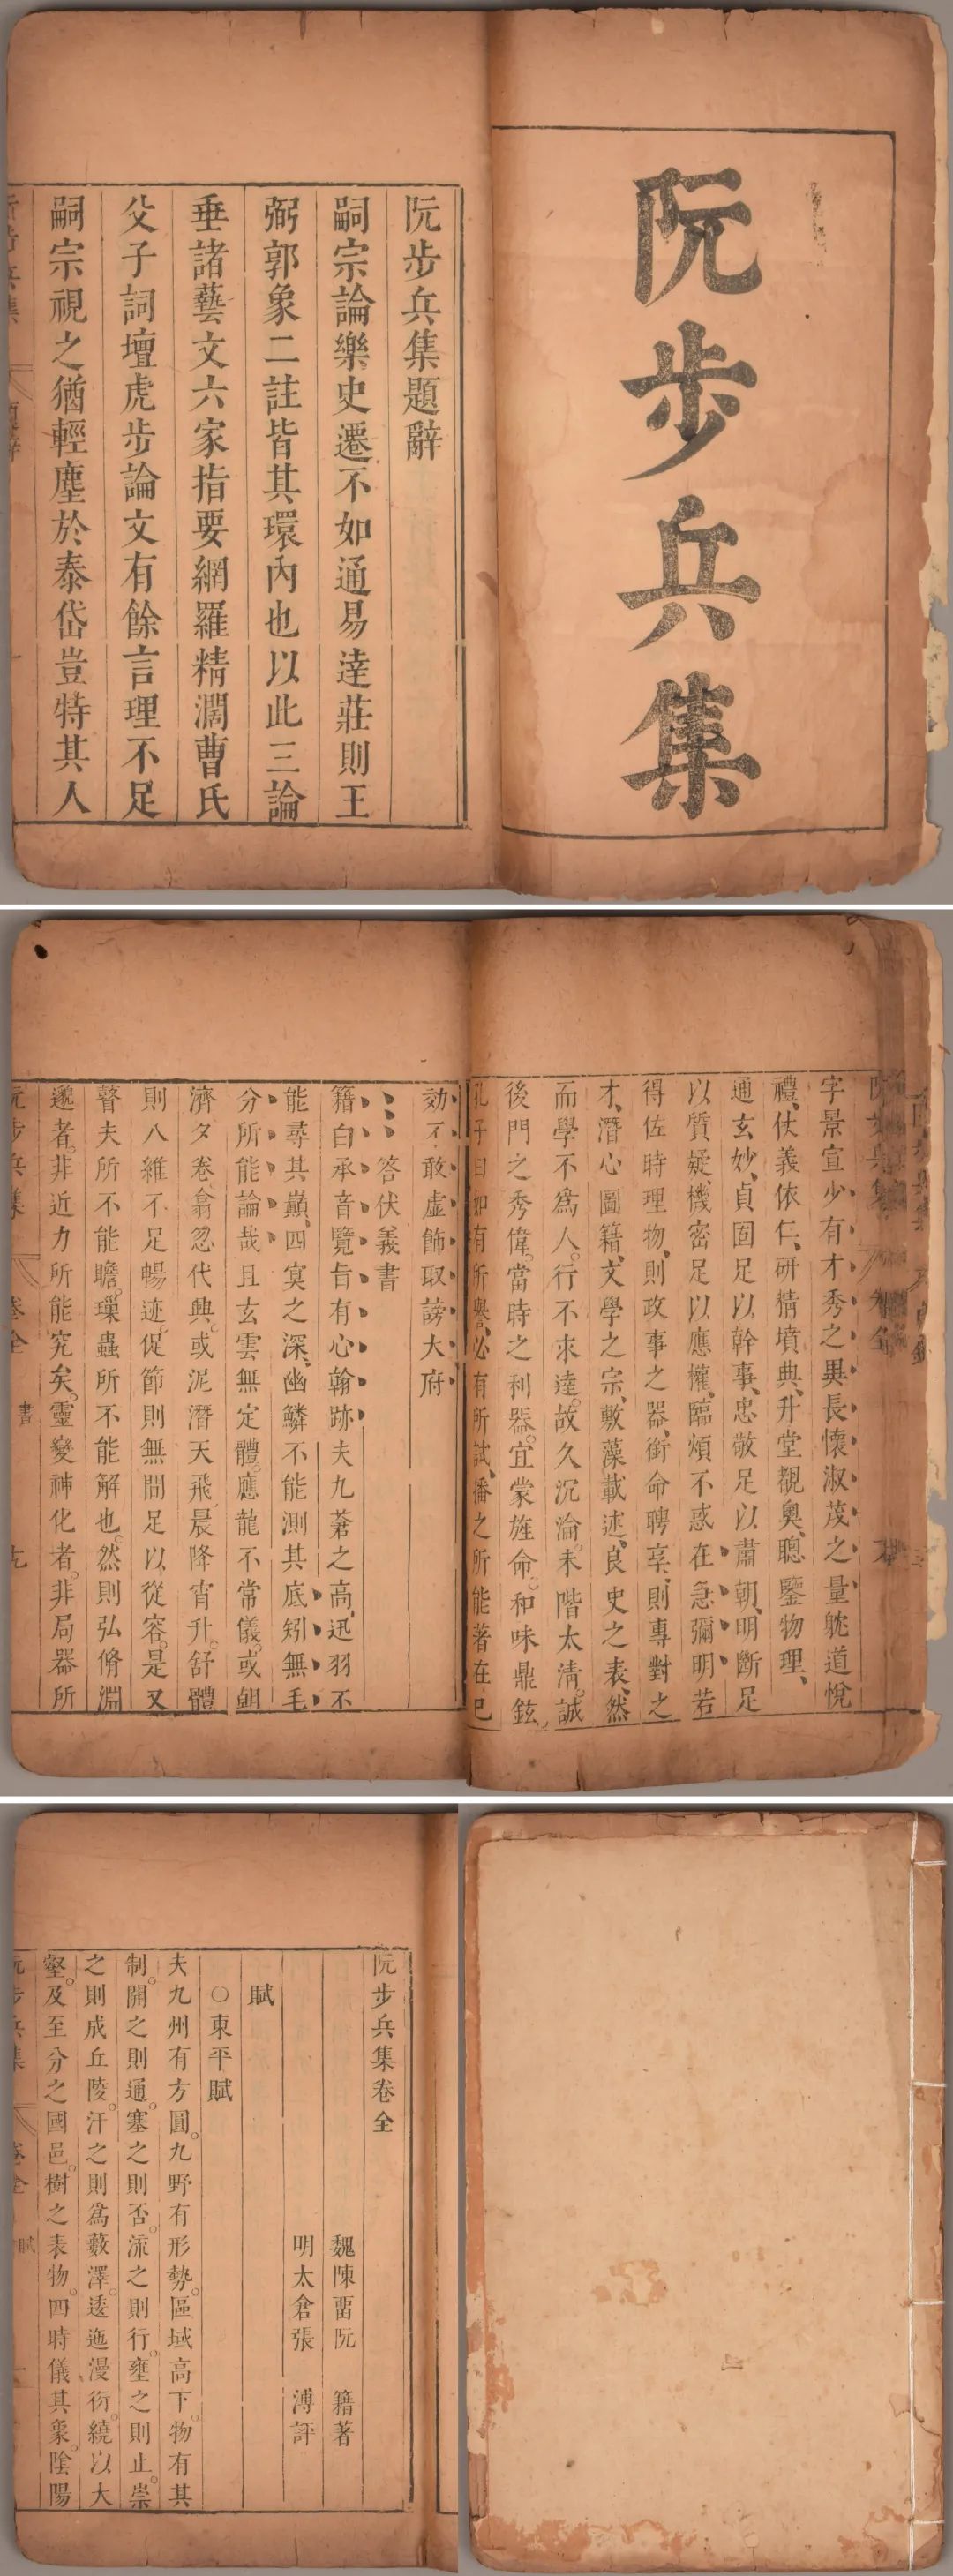 阮步兵集
阮步兵集題辭
嗣宗論樂史遷不如通易達莊則王
弼郭象二註皆其環內也以此三論
垂諸藝文六家指要網羅精濶曹氏
父子詞壇虎步論文有餘言理不足
嗣宗視之猶輕塵於泰岱豈特其人
字景宣少有才秀之異長懷淑茂之量躭道悅
禮仗義依仁研精墳典升堂覩奧聰鑒物理
通玄妙貞固足以幹事忠敬足以肅朝明斷足
以質疑機密足以應權臨煩不惑在急彌明若
得佐時理物則政事之器銜命聘享則專對之
才潛心圖籍文學之宗敷藻載述良史之表然
而學不為人行不求達故久沉淪未階太淸誠
後門之秀偉當時之利器宜蒙旌命和味鼎鉉
孔子曰如有所譽必有所試播之所能著在已
効不敢虛飾取謗大府
答伏義書
籍白承音覽旨有心翰跡夫九蒼之高迅羽不
能尋其巔四寞之深幽鱗不能測其底矧無毛
分所能論哉且玄雲無定體應龍不常儀或朝
濟夕卷翕忽代興或泥潛天飛晨降宵升舒體
則八維不足暢迹促節則無間足以從容是又
瞽夫所不能瞻璅蟲所不能解也然則弘脩淵
邈者非近力所能究矣靈變神化者非局器所
阮步兵集 卷全 書 九
阮步兵集卷全
魏陳畱阮 籍著
明太倉張 溥評
賦
○東平賦
夫九州有方圓。九野有形勢。區域高下。物有其
制。開之則通。塞之則否。流之則行。壅之則止。崇
之則成丘陵。汙之則爲藪澤。逶迤漫衍。繞以大
壑。及至分之國邑。樹之表物。四時儀其象。陰陽
阮步兵集 卷全 賦 一